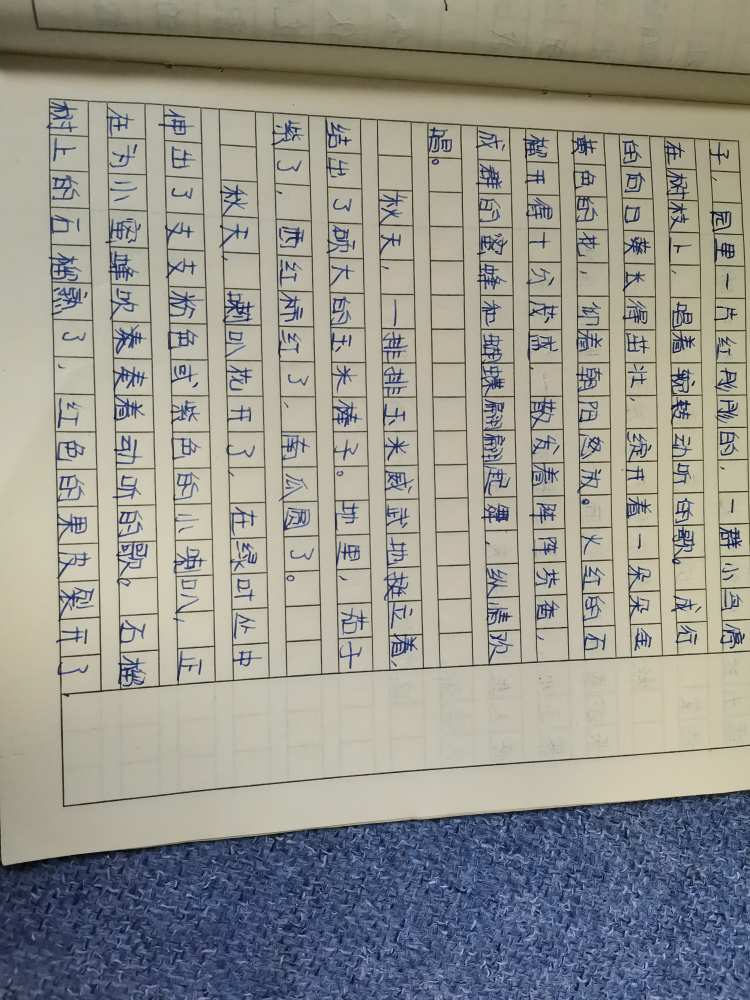 子，园里一片红彤彤的，一群小鸟停
在树枝上，唱着婉转动听的歌。成行
的向日葵长得茁壮，绽开着一朵朵金
黄色的花，仰着朝阳怒放。火红的石
榴开得十分茂盛，散发着阵阵芬香，
成群的蜜蜂和蝴蝶翩翩起舞，纵情欢
唱。
秋天，一排排玉米威武地挺立着，
结出了硕大的玉米棒子。地里，茄子
紫了，西红柿红了，南瓜圆了。
秋天，喇叭花开了，在绿叶丛中
伸出了支支粉色或紫色的小喇叭，正
在为小蜜蜂吹奏奏着动听的歌。石榴
树上的石榴熟了，红色的果皮裂开了